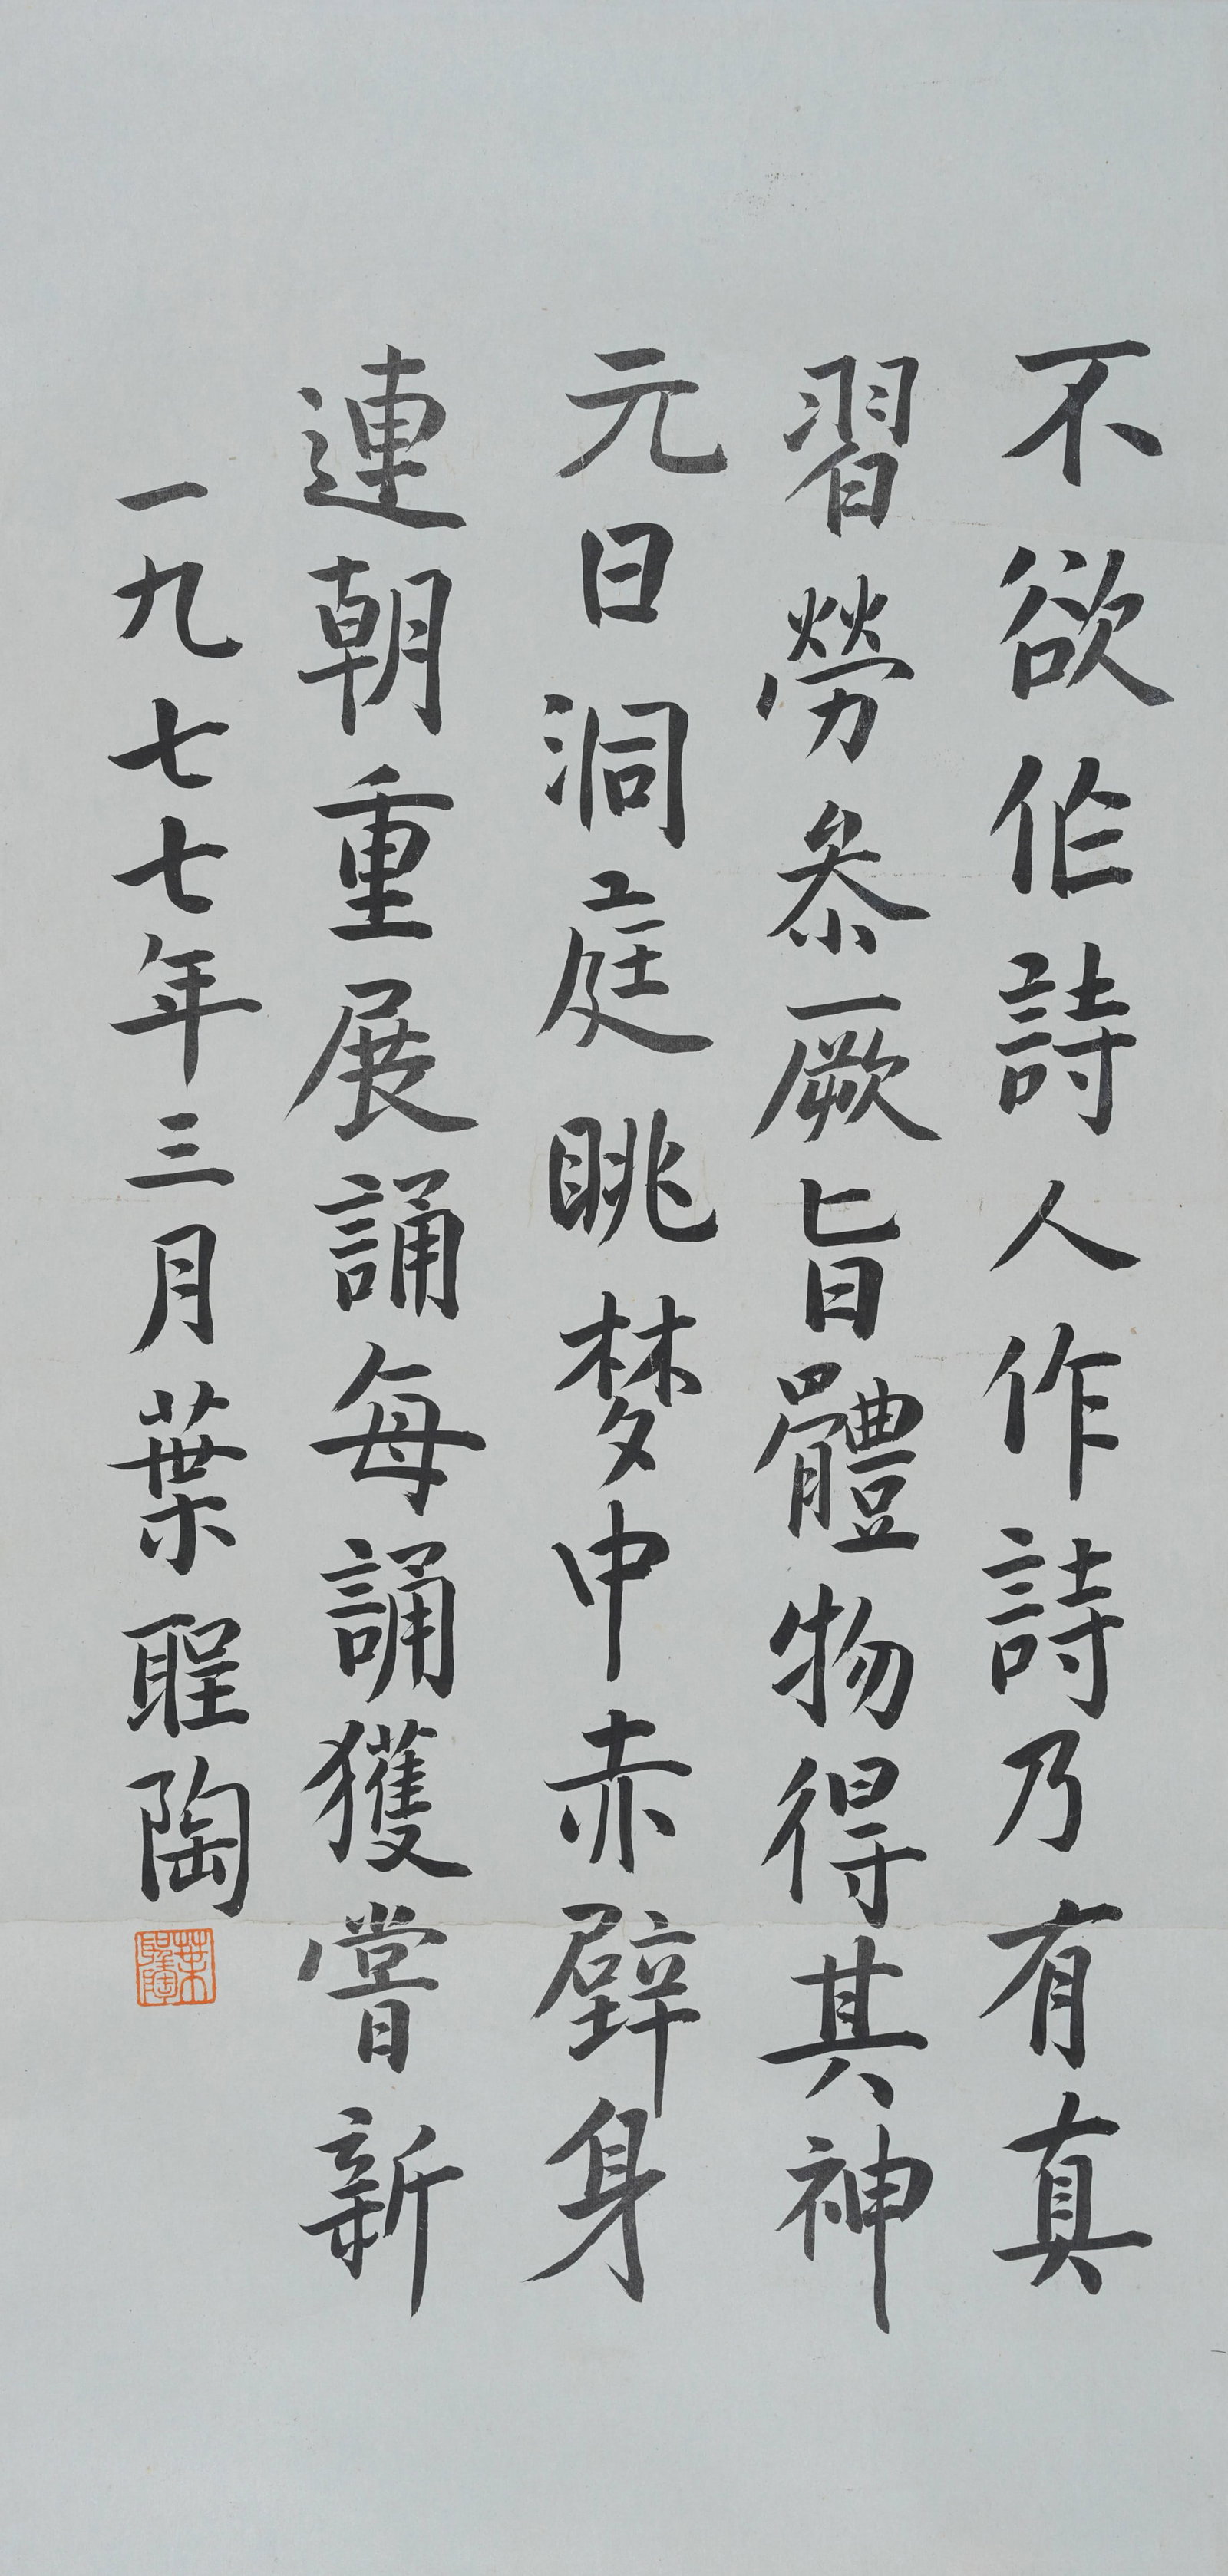 不欲作詩人作詩乃有真
習勞叅厥旨體物得其神
元日洞庭眺梦中赤壁身
連朝重展誦每誦獲嘗新
一九七七年三月葉聖陶
葉聖陶